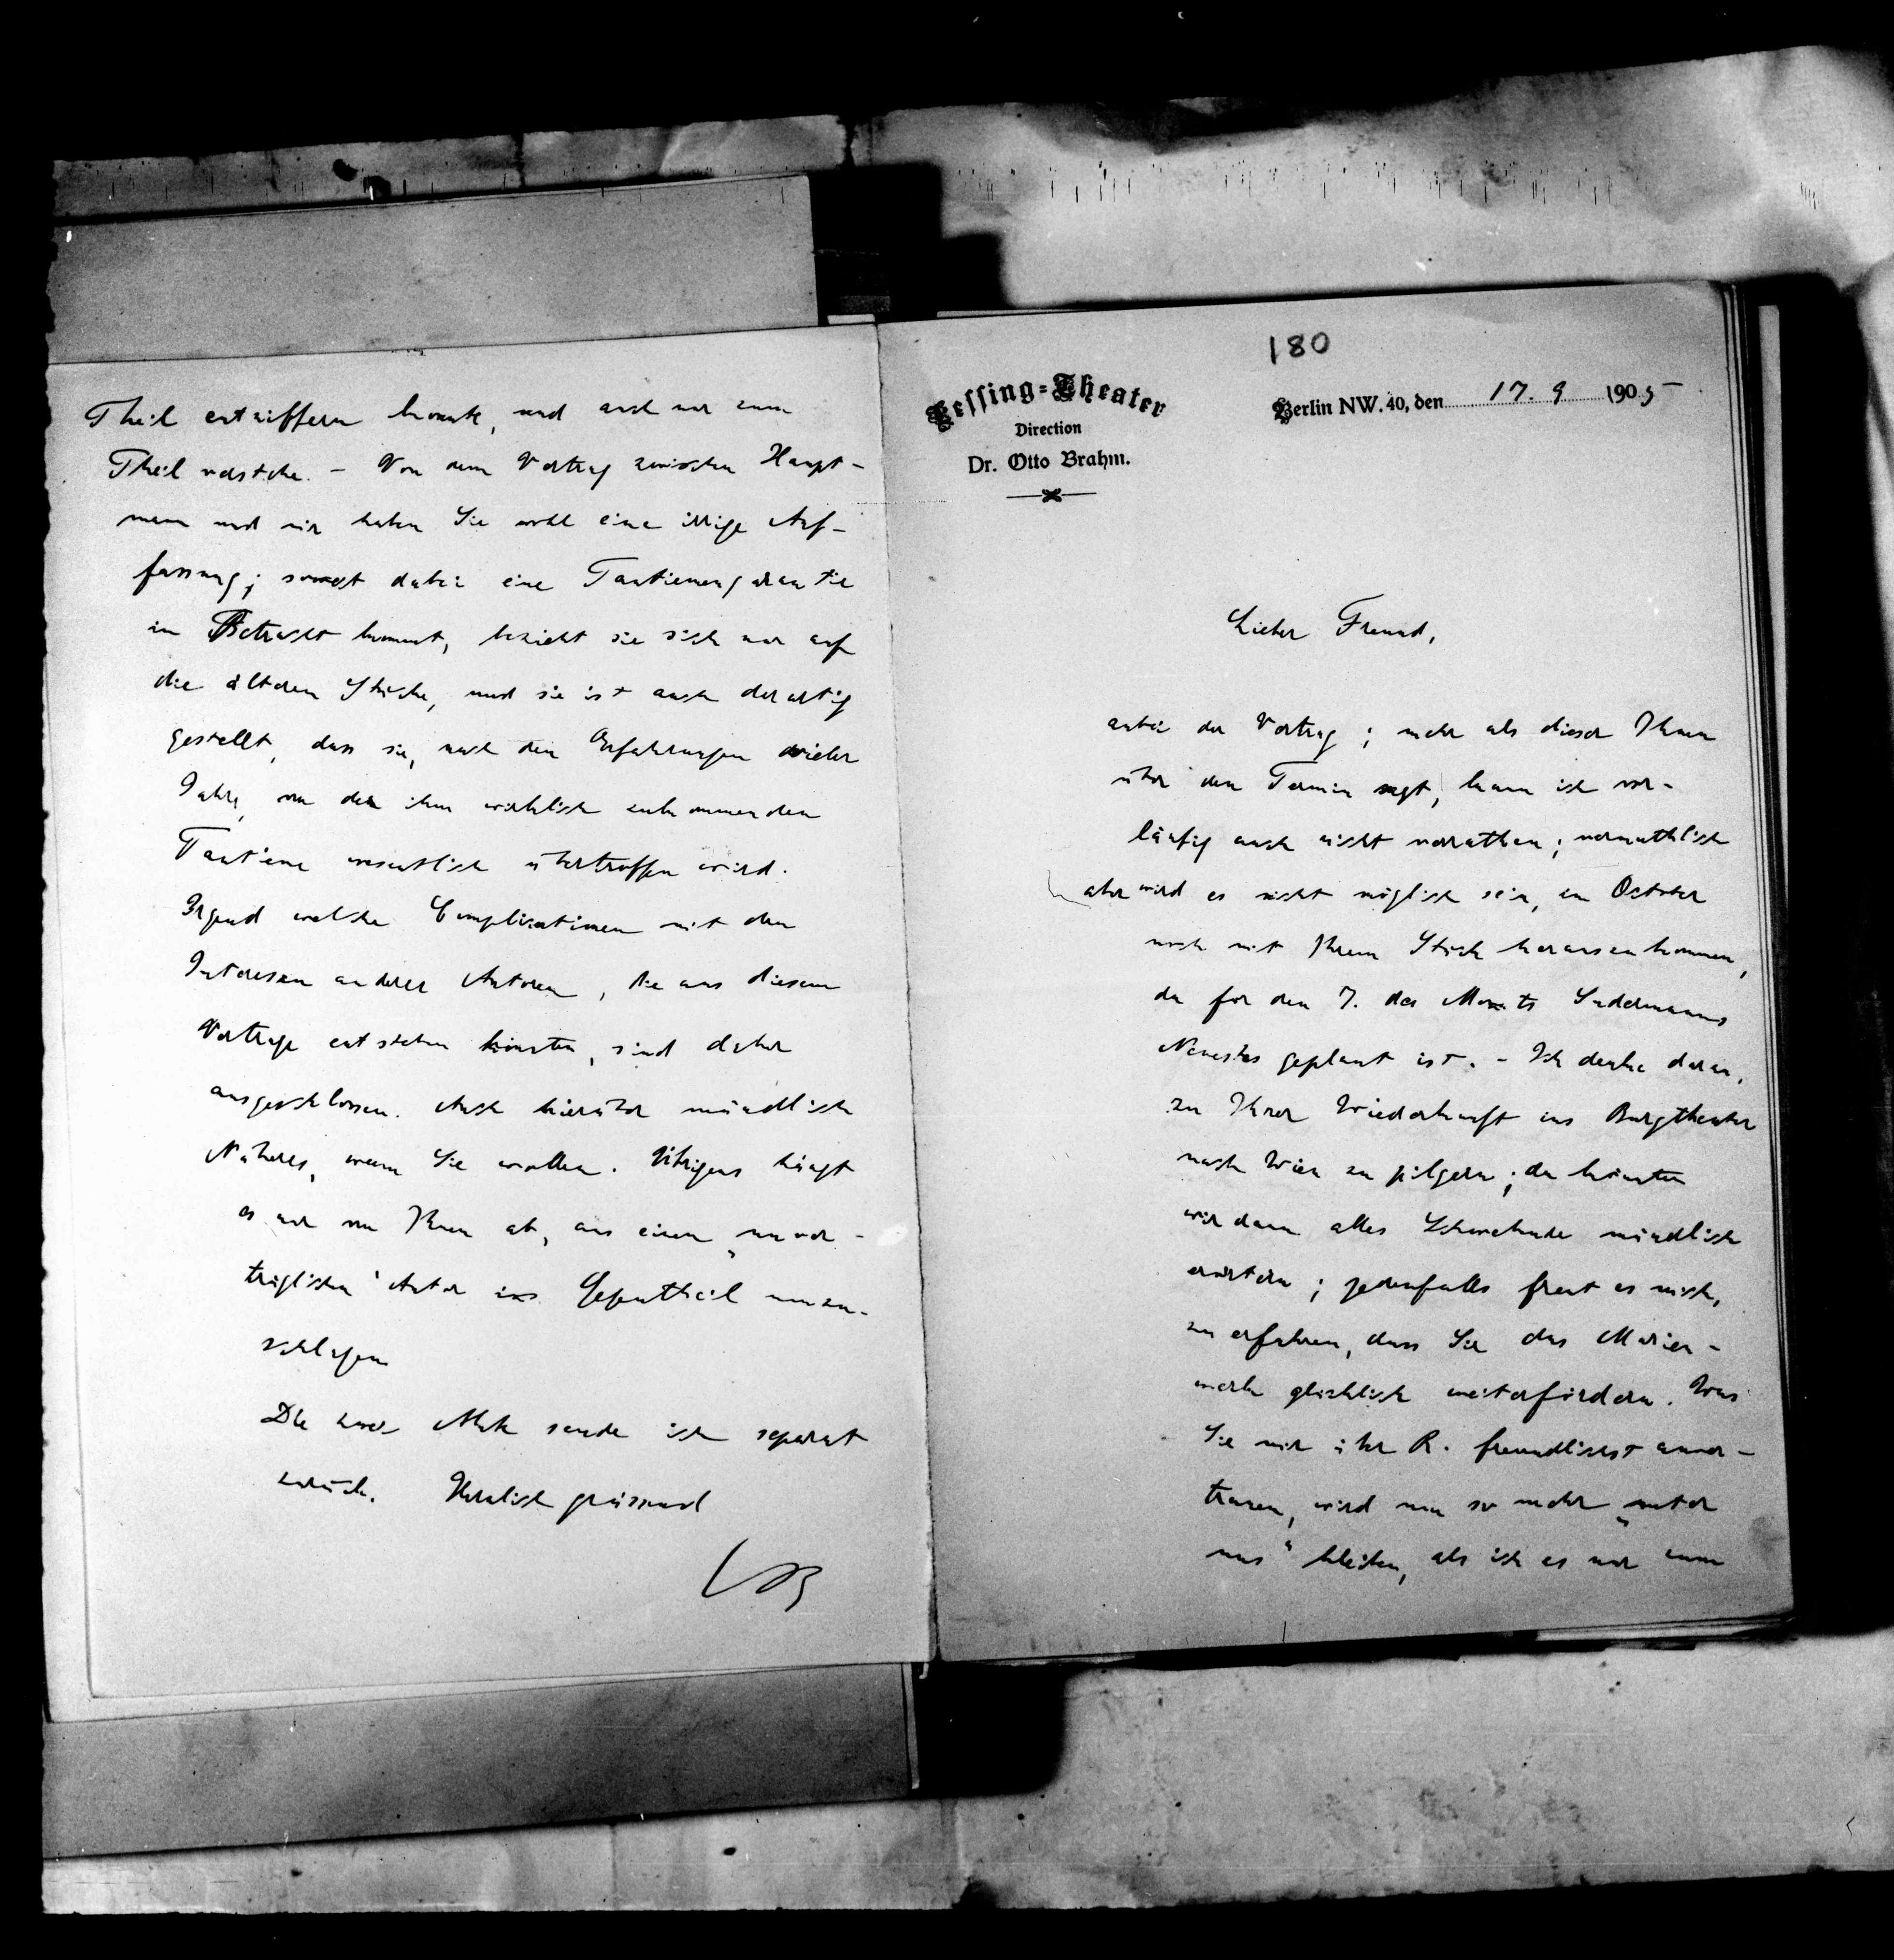 180
Lessing-Theater
Direction
Dr. Otto Brahm.
Berlin NW. 40, den 17. 9 1905
Lieber Freund,
anbei der Vertrag; mehr als dieser Ihnen
über den Termin sagt, kann ich vor-
läufig auch nicht verrathen; vermuthlich
aber wird es nicht möglich sein, im October
noch mit Ihrem Stück herauszukommen,
da für den 7. des Monats Sudermanns
Neuestes geplant ist. – Ich denke daran,
zu Ihrer Wiederkunft ins Burgtheater
nach Wien zu pilgern; da könnten
wir dann alles Schwebende mündlich
erörtern; jedenfalls freut es mich,
zu erfahren, dass Sie das
werk glücklich weiterfördern. Was
Sie mir über R. freundlichst anver-
trauen, wird um so mehr „unter
uns“ bleiben, als ich es nur zum
Theil entziffern konnte, und auch nur zum
Theil verstehe. – Von dem Vertrag zwischen Haupt-
mann und mir haben Sie wohl eine irrige Auf-
fassung; soweit dabei eine Tantiemengarantie
in Betracht kommt, bezieht sie sich nur auf
die älteren Stücke, und sie ist auch derartig
gestellt, dass sie, nach den Erfahrungen vieler
Jahre, von der ihm wirklich zukommenden
Tantieme wesentlich übertroffen wird.
Irgend welche Complicationen mit den
Interessen anderer Autoren, die aus diesem
Vertrage entstehen könnten, sind daher
ausgeschlossen. Auch hierüber mündlich
Näheres, wenn Sie wollen. Übrigens hängt
es nur von Ihnen ab, aus einem „unver-
träglichen“ Autor ins Gegentheil umzu-
schlagen
Die zwei Akte sende ich separat
zurück. Herzlich grüssend
OB